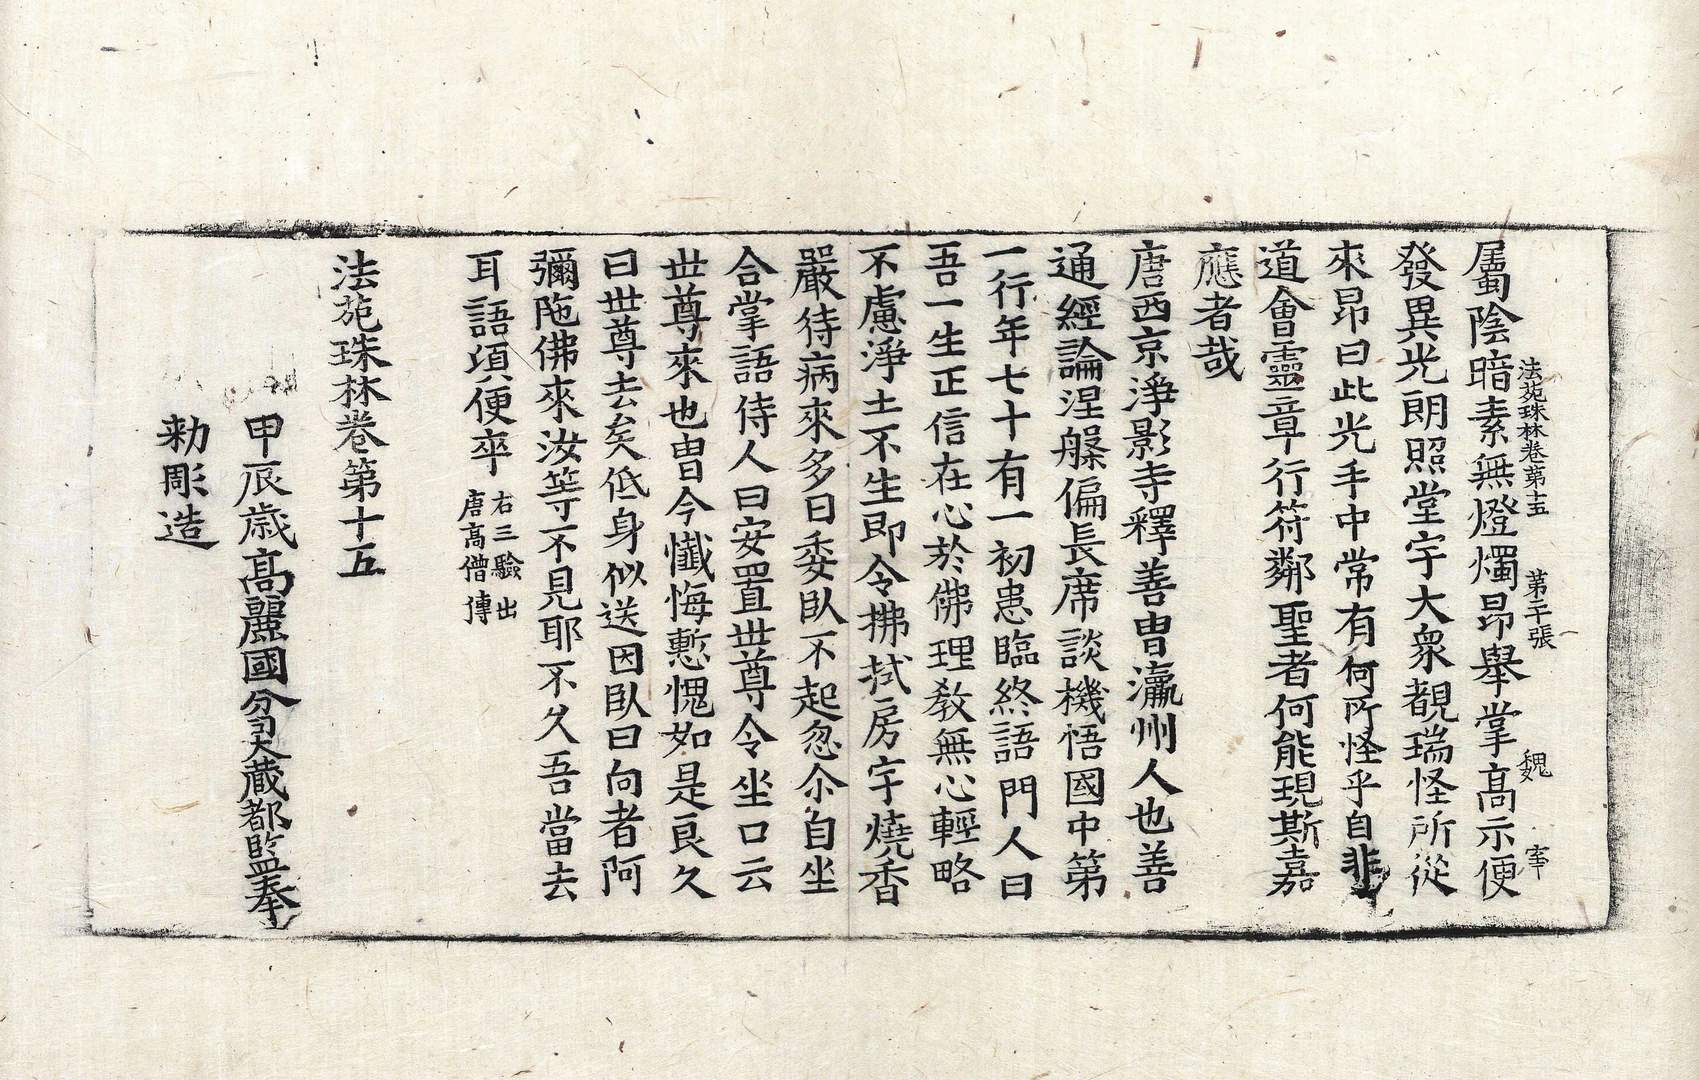 法苑珠林卷第十五 第二十張 魏 宰
屬陰暗素無燈燭昂舉掌高示便
發異光朗照堂宇大衆覩瑞怪所從
來昂曰此光手中常有何所怪乎自非
道會靈章行符鄰聖者何能現斯嘉
應者哉
唐西京淨影寺釋善胄瀛州人也善
通經論涅槃偏長席談機悟國中第
一行年七十有一初患臨終語門人曰
吾一生正信在心於佛理教無心輕略
不慮淨土不生即令拂拭房宇燒香
嚴待病來多日委臥不起忽尒自坐
合掌語侍人曰安置世尊令坐口云
世尊來也胄今懺悔慙愧如是良久
曰世尊去矣低身似送因臥曰向者阿
彌陁佛來汝等不見耶不久吾當去
耳語頃便卒右三驗出
唐高僧傳
法苑珠林卷第十五
甲辰歲高麗國分司大藏都監奉
勑彫造